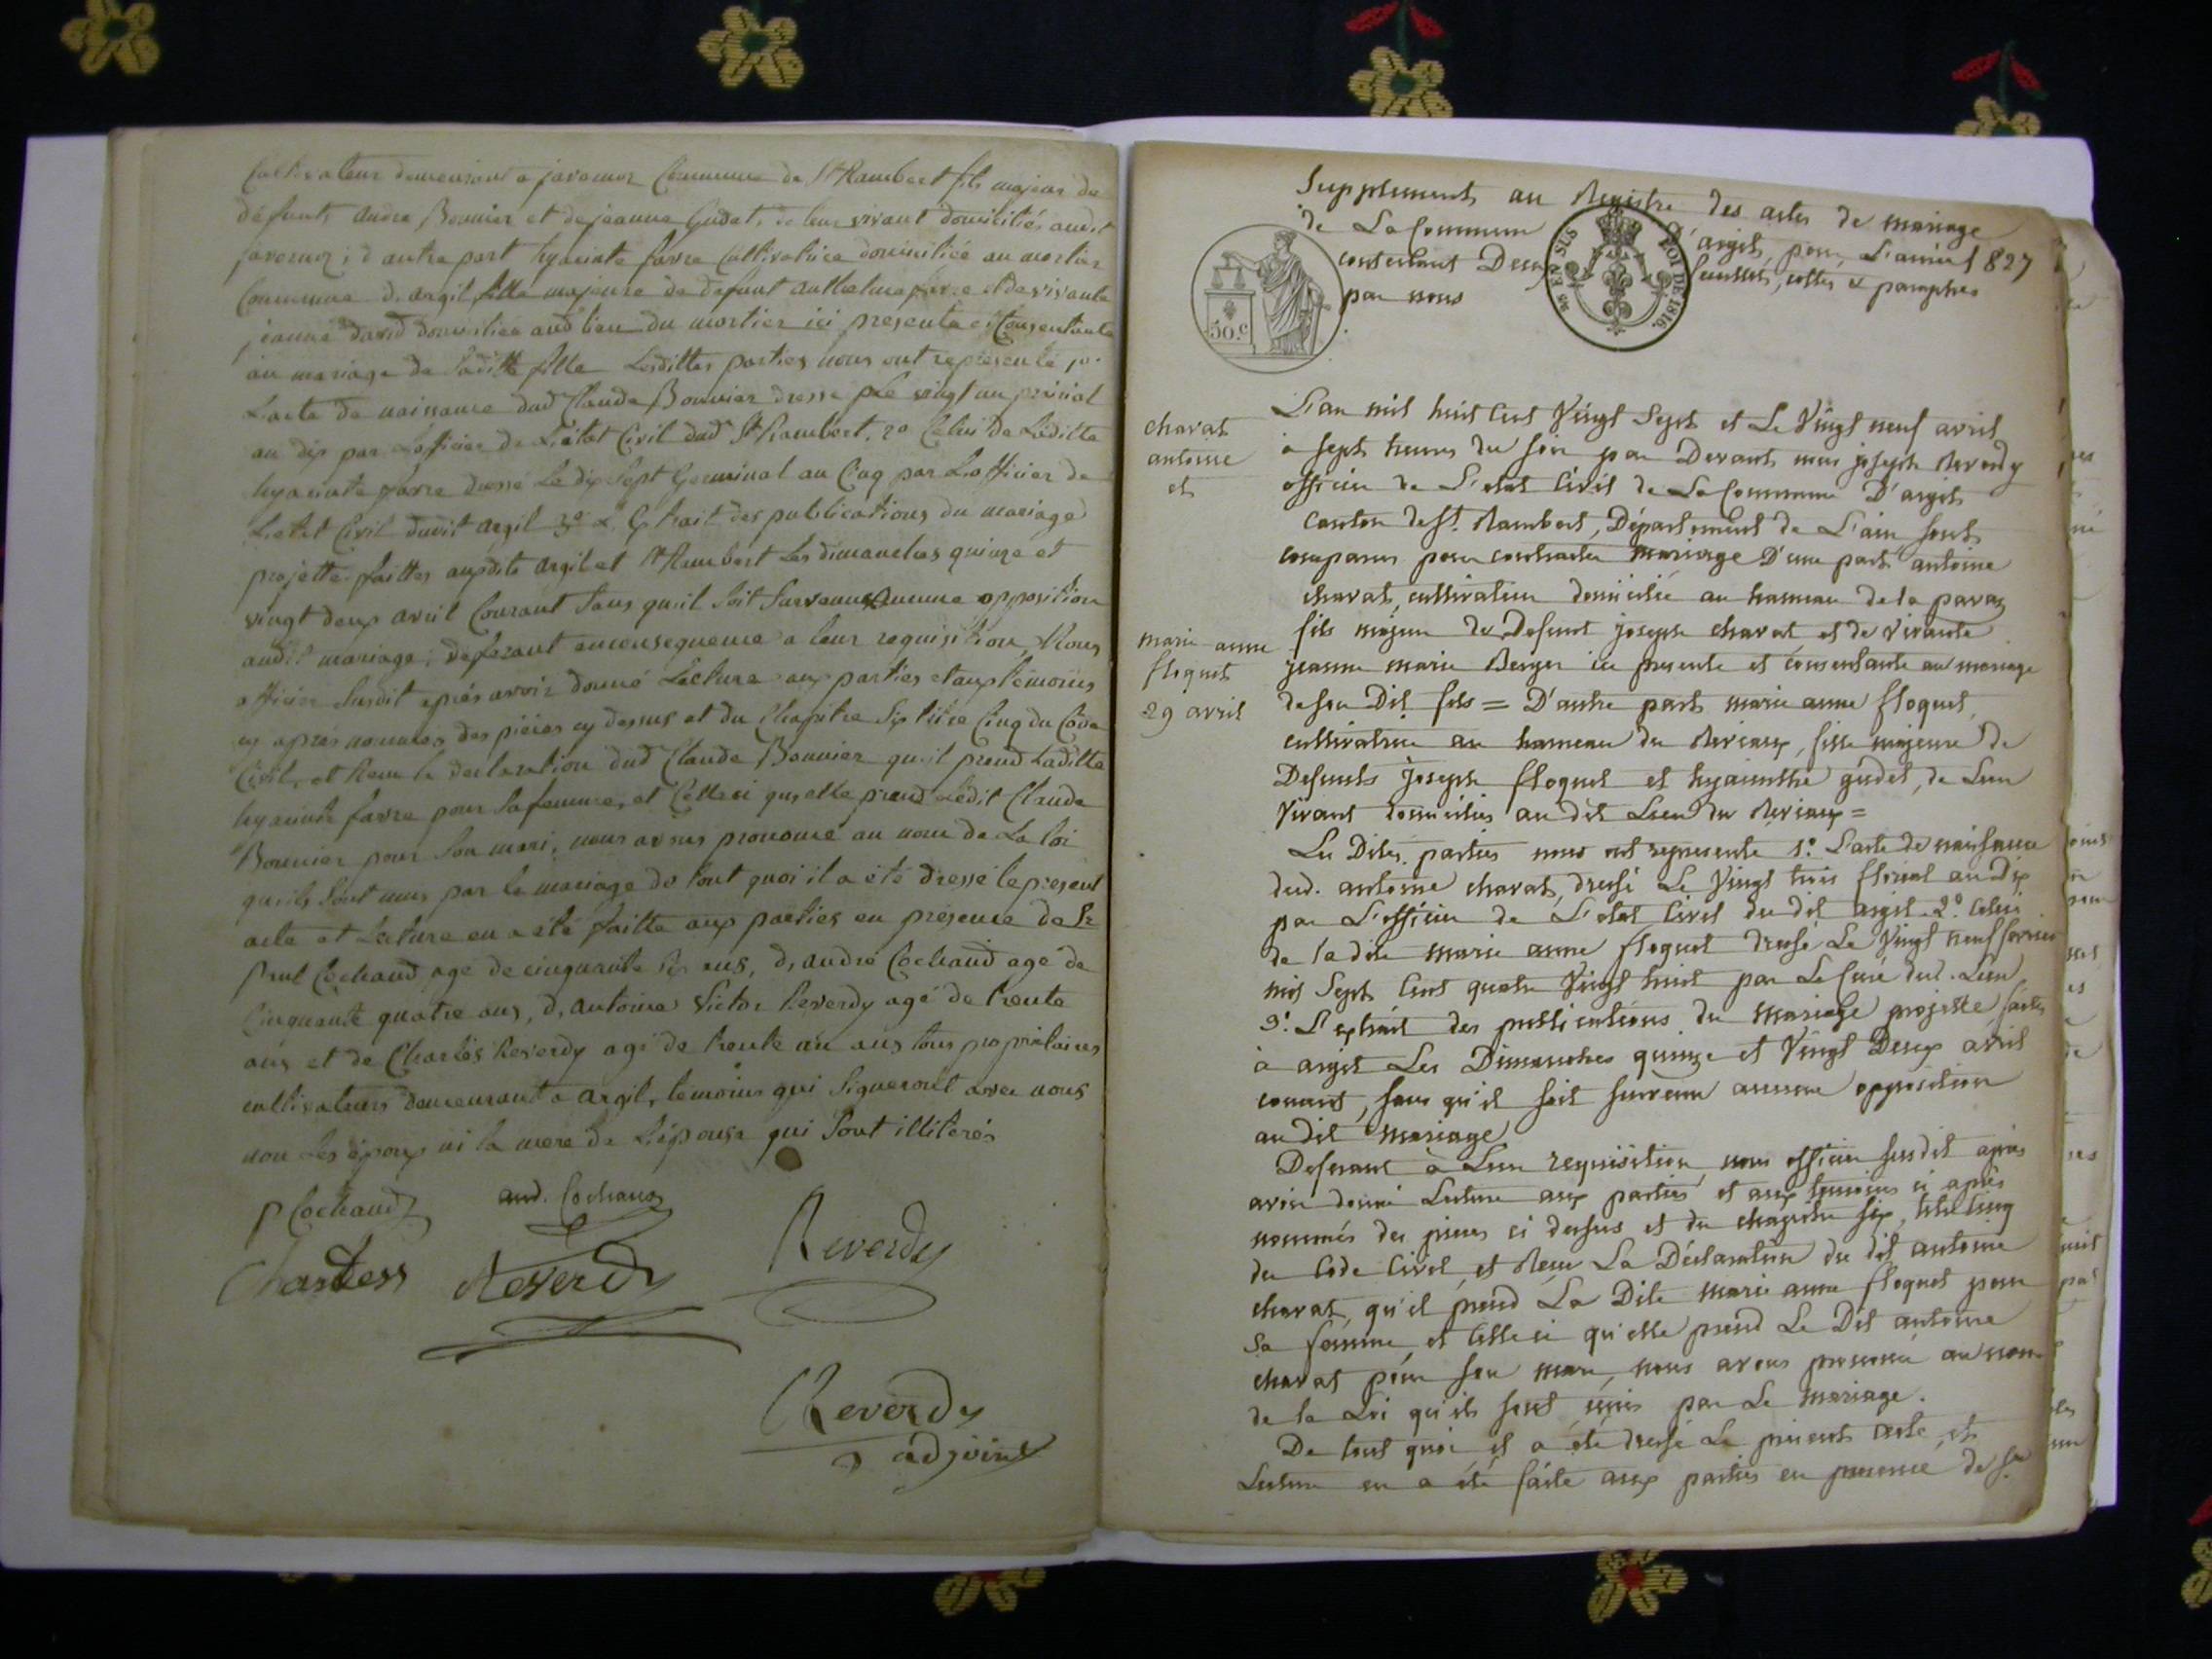 Cultivateur demeurant a javornoz Commune de St Rambert fils majeur de
défunts andré Bonnier et de jeanne Gudet, de leur vivant domiciliés audit
javornoz ; d'autre part hyacinte favre Cultivatrice domiciliée au mortier
Commune d'argil fille majeure de defunt anthelme favre et de vivante
jeanne david domiciliée aud lieu du mortier ici presente et Consentante
au mariage de Saditte fille Lesdittes parties nous ont representé 1o
L'acte de naissance dud Claude Bonnier dressé le vingt un prairial
an dix par Lofficier de L'état Civil dud St Rambert, 2o Celui de Laditte
hyacinte favre dressé Le dix sept Germinal an Cinq par Lofficier de
L'etat Civil dudit argil 3o L'Extrait des publications du mariage
projetté faittes auxdits argil et St Rambert Les dimanches quinze et
vingt deux avril Courant Sans qu'il Soit Survenu aucune opposition
audit mariage ; deferant en consequence a leur requisition, Nous
officier Susdit après avoir donné Lecture aux parties et aux temoins
cy apres nommés des pièces cy dessus et du Chapitre Six titre Cinq du Code
Civil, et Reçu la declaration dud Claude Bonnier qu'il prend Laditte
hyacinte favre pour Sa femme, et Celle ci qu'elle prend Ledit Claude
Bonnier pour Son mari, nous avons prononcé au nom de La loi
qu'ils Sont unis par le mariage de tout quoi il a été dressé le present
acte et Lecture en a été faitte aux parties en presence de Sr
Paul Cochaud agé de cinquante six ans, d, andré Cochaud agé de
Cinquante quatre ans, d, antoine Victor Reverdy agé de trente
ans et de Charles Reverdy agé de trente un ans tous proprietaires
cultivateurs demeurant a argil, temoins qui Signeront avec nous
non Les époux ni la mere de L'épouse qui Sont illiterés
P Cochaud
and. Cochaud
Reverdy
Charless Reverdy
Reverdy
adjoint
Supplement au Registre des actes de mariage
de La Commune d'argis, pour L'année 1827
contenant Deux feuillets, cottés & paraphés
par nous
50. c
EN SUS
LOI DE 1816.
charat
antoine
et
marie anne
floquet
29 avril
L'an mil huit cent Vingt Sept et Le Vingt neuf avril
à sept heures du soir par Devant nous joseph Reverdy
officier de L'etat Civil de La Commune D'argis
canton de St. Rambert, Département de L'ain sont
comparus pour contracter mariage D'une part antoine
charat, cultivateur domicilié au hameau de la
fils majeur de Defunt joseph charat et de vivante
jeanne marie Berger ici presente et consentante au mariage
de son Dit fils = D'autre part marie anne floquet
cultivatrice au hameau du Reviaux, fille majeure de
Defunts joseph floquet et hyacinthe gudet, de Leur
Vivant domiciliés au dit Lieu du Reviaux =
Les Dites parties nous ont representé 1o. L'acte de naissance
dud. antoine charat, dressé Le Vingt trois floreal an Dix
par L'officier de L'etat Civil du dit argis 2o. Celui
de la dite marie anne floquet dressé Le Vingt neuf fevrier
mil Sept Cent quatre Vingt huit par Le Curé dud. Lieu
3o. L'extrait des publications du mariage projetté faites
à argis Les Dimanches quinze et Vingt Deux avril
courant, sans qu'il soit survenu aucune opposition
au dit mariage
Deferant à Leur requisition nous officier susdit après
avoir donné Lecture aux parties et aux temoins ci après
nommés des pieces ci dessus et du chapitre six, titre Cinq
du Code Civil, et Reçu La Déclaration du dit antoine
charat, qu'il prend La Dite marie anne floquet pour
sa femme et Celle ci qu'elle prend Le Dit antoine
charat pour son mari, nous avons prononcé au nom
de la Loi qu'ils sont unis par Le mariage.
De tout quoi il a été dressé Le present acte, et
Lecture en a été faite aux parties en presence de sr